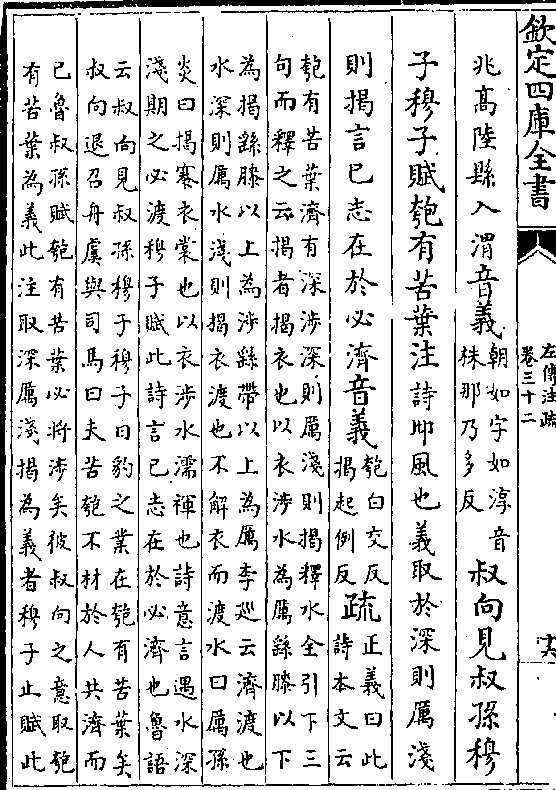 欽定四庫全書
左傳注疏
卷三十二
十六
兆髙陸縣入渭音義朝如字如淳音
株那乃多反叔向見叔孫穆
子穆子賦匏有苦葉注詩邶風也義取於深則厲淺
則揭言已志在於必濟音義匏白交反
揭起例反疏正義曰此
詩本文云
匏有苦葉濟有深涉深則厲淺則揭釋水全引下三
句而釋之云揭者揭衣也以衣涉水為厲繇膝以下
為揭繇膝以上為涉繇帶以上為厲李廵云濟渡也
水深則厲水淺則揭衣渡也不解衣而渡水曰厲孫
炎曰揭褰衣裳也以衣涉水濡褌也詩意言遇水深
淺期之必渡穆子賦此詩言已志在於必濟也魯語
云叔向見叔孫穆子穆子曰豹之業在匏有苦葉矣
叔向退召舟虞與司馬曰夫苦匏不材於人共濟而
已魯叔孫賦匏有苦葉必將涉矣彼叔向之意取匏
有苦葉為義此注取深厲淺揭為義者穆子止賦此